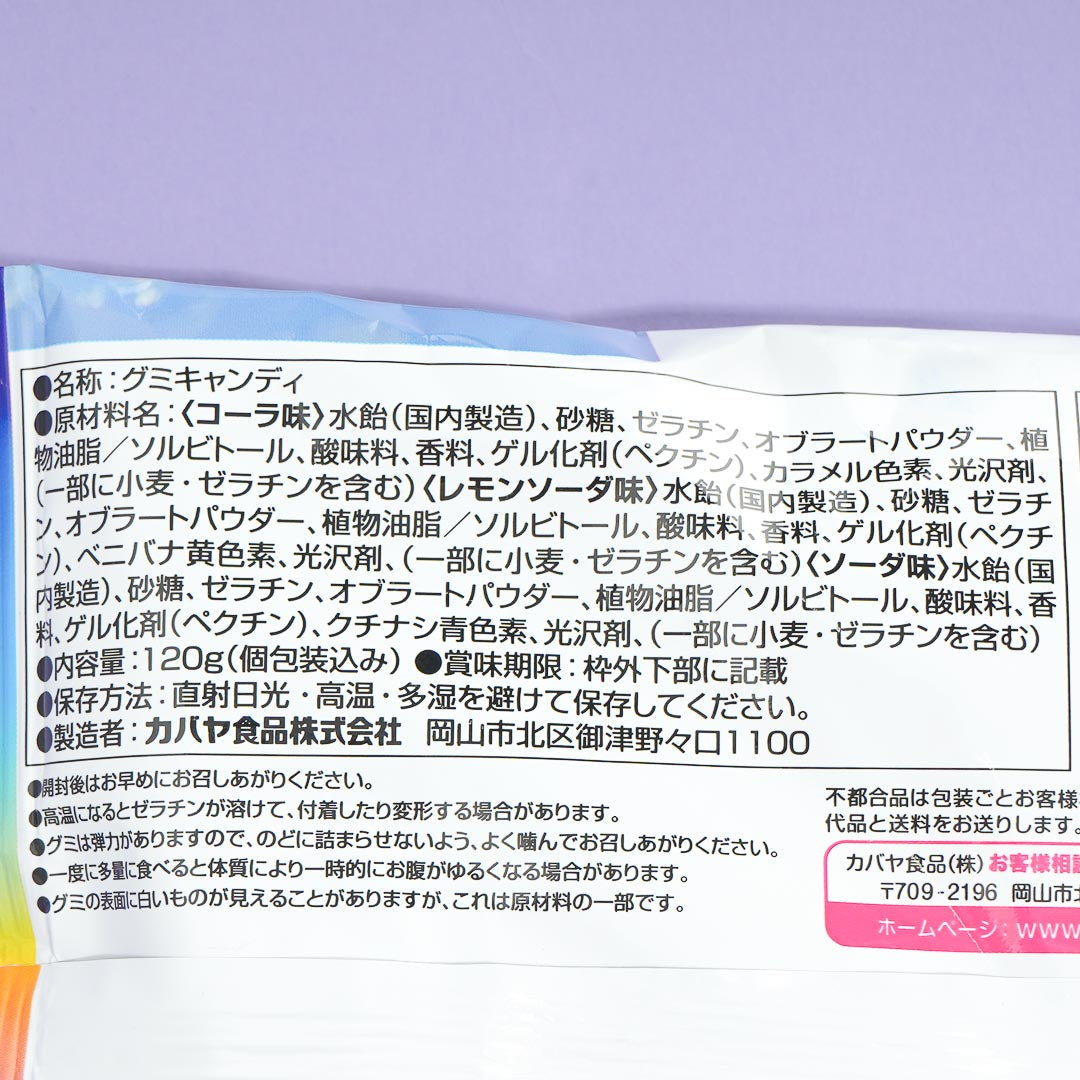 ●名称：グミキャンディ
●原材料名：〈コーラ味〉水飴（国内製造）、砂糖、ゼラチン、オブラートパウダー、植
物油脂／ソルビトール、酸味料、香料、ゲル化剤（ペクチン）、カラメル色素、光沢剤、
（一部に小麦・ゼラチンを含む）〈レモンソーダ味〉水飴（国内製造）、砂糖、ゼラチ
ン、オブラートパウダー、植物油脂／ソルビトール、酸味料、香料、ゲル化剤（ペクチ
ン）、ベニバナ黄色素、光沢剤、（一部に小麦・ゼラチンを含む）〈ソーダ味〉水飴（国
内製造）、砂糖、ゼラチン、オブラートパウダー、植物油脂／ソルビトール、酸味料、香
料、ゲル化剤（ペクチン）、クチナシ青色素、光沢剤、（一部に小麦・ゼラチンを含む）
●内容量：120g（個包装込み） ●賞味期限：枠外下部に記載
●保存方法：直射日光・高温・多湿を避けて保存してください。
●製造者：カバヤ食品株式会社 岡山市北区御津野々口1100
●開封後はお早めにお召しあがりください。
●高温になるとゼラチンが溶けて、付着したり変形する場合があります。
●グミは弾力がありますので、のどに詰まらせないよう、よく噛んでお召しあがりください。
●一度に多量に食べると体質により一時的にお腹がゆるくなる場合があります。
●グミの表面に白いものが見えることがありますが、これは原材料の一部です。
不都合品は包装ごとお客様
代品と送料をお送りします。
カバヤ食品（株）お客様相談
〒709-2196 岡山市北
ホームページ：www.